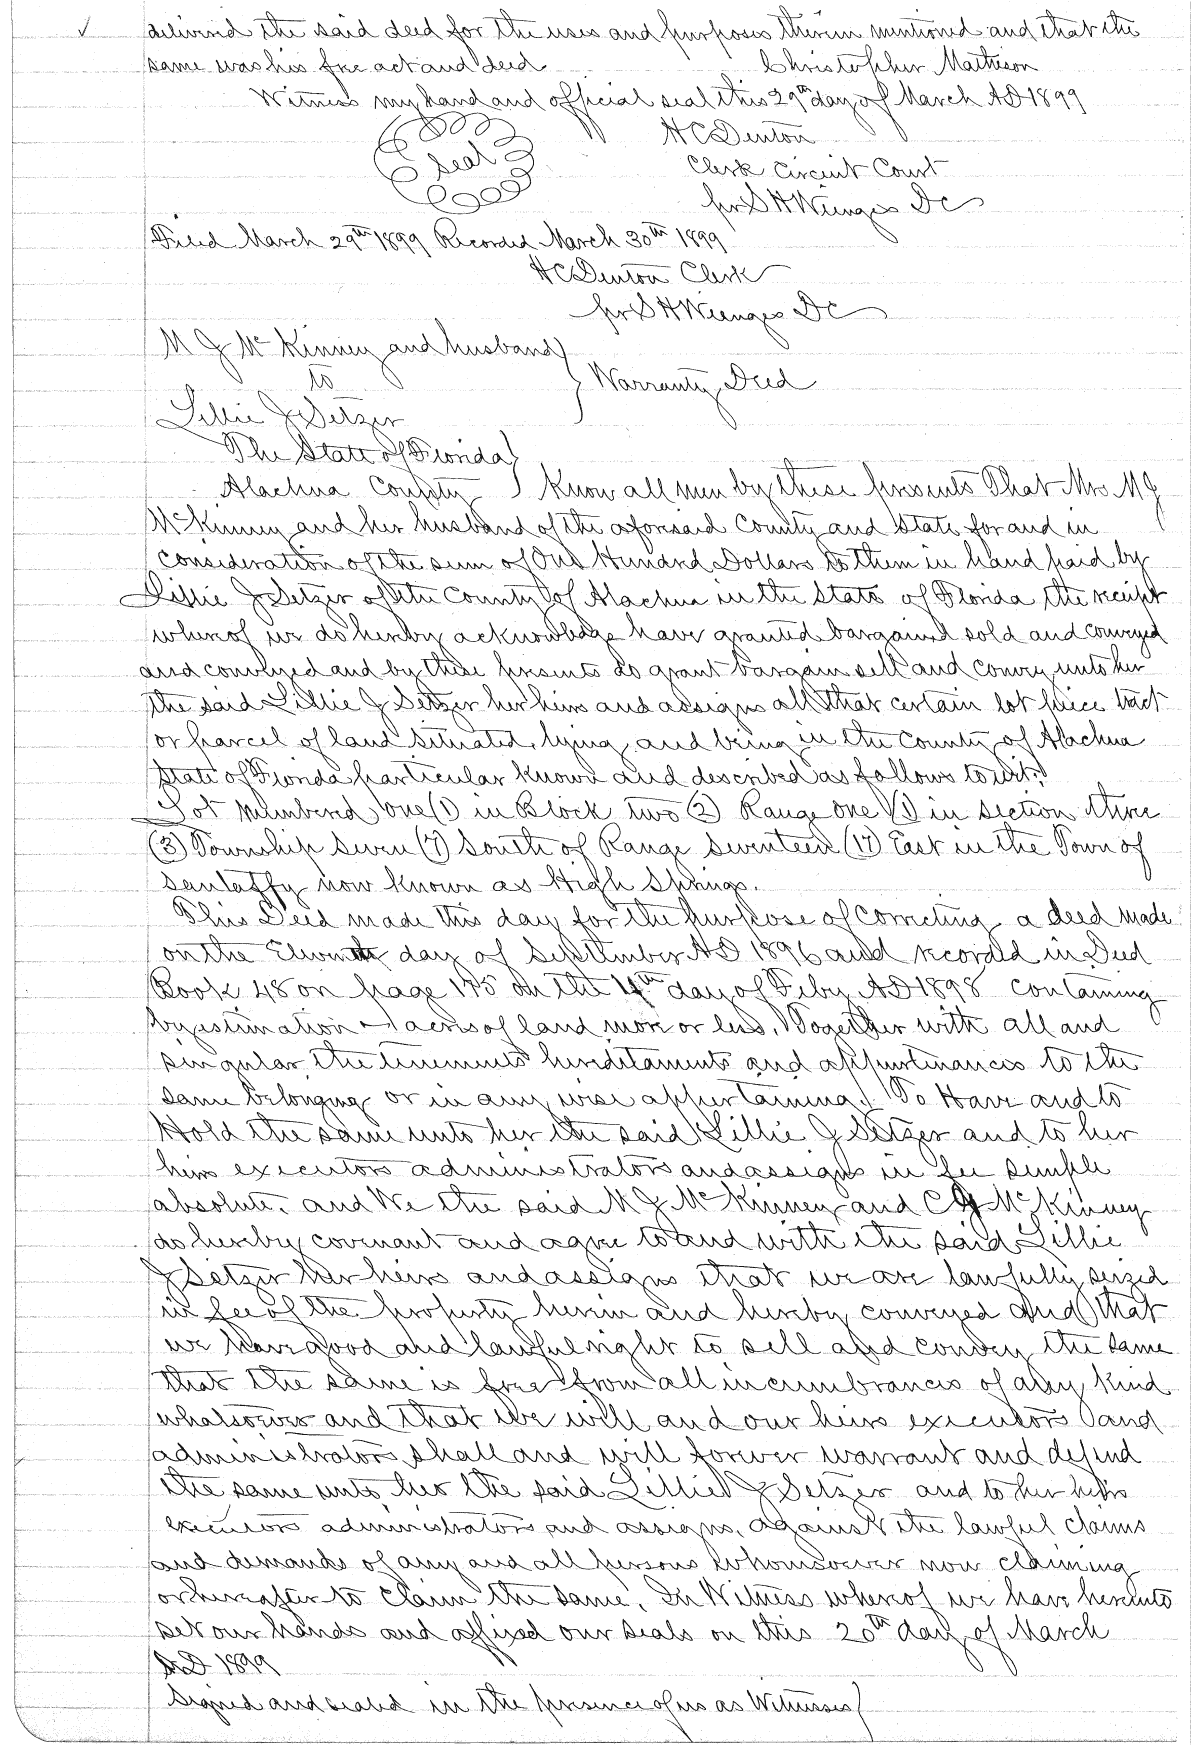 ✓ delivered the said deed for the uses and purposes therein mentioned and that the
same was his free act and deed Christopher Matheson
Witness my hand and official seal this 29th day of March AD 1899
Seal H C Denton
Clerk Circuit Court
pr S H Wienges D C
Filed March 29th 1899 Recorded March 30th 1899
H C Denton Clerk
pr S H Wienges D C
M J McKinney and husband
to } Warranty Deed
Lillie J Setzer
The State of Florida }
Alachua County } Know all men by these presents That Mrs M J
McKinney and her husband of the aforesaid County and State for and in
consideration of the sum of One Hundred Dollars to them in hand paid by
Lillie J Setzer of the County of Alachua in the State of Florida the receipt
whereof we do hereby acknowledge have granted bargained sold and conveyed
and conveyed and by these presents do grant bargain sell and convey unto her
the said Lillie J Setzer her heirs and assigns all that certain lot piece tract
or parcel of land situated, lying and being in the County of Alachua
State of Florida particular known and described as follows to wit:
Lot numbered one (1) in Block two (2) Range one (1) in section three
(3) Township seven (7) South of Range seventeen (17) East in the Town of
Santaffy now known as High Springs.
This Deed made this day for the purpose of correcting a deed made
on the Eleventh day of September AD 1896 and recorded in Deed
Book 48 on page 175 on the 4th day of Feby AD 1898 containing
by estimation ~ acres of land more or less. Together with all and
singular the tenements hereditaments and appurtenances to the
same belonging or in any wise appertaining. To Have and to
Hold the same unto her the said Lillie J Setzer and to her
heirs executors administrators and assigns in fee simple
absolute. and We the said M J McKinney and C G McKinney
do hereby covenant and agree to and with the said Lillie
J Setzer her heirs and assigns that we are lawfully seized
in fee of the property herein and hereby conveyed and that
we have good and lawful right to sell and convey the same
that the same is free from all incumbrances of any kind
whatsoever and that we will and our heirs executors and
administrators shall and will forever warrant and defend
the same unto her the said Lillie J Setzer and to her heirs
executors administrators and assigns, against the lawful claims
and demands of any and all persons whomsoever now claiming
or hereafter to claim the same. In Witness whereof we have hereunto
set our hands and affixed our seals on this 20th day of March
A.D 1899
Signed and sealed in the presence of us as Witnesses }